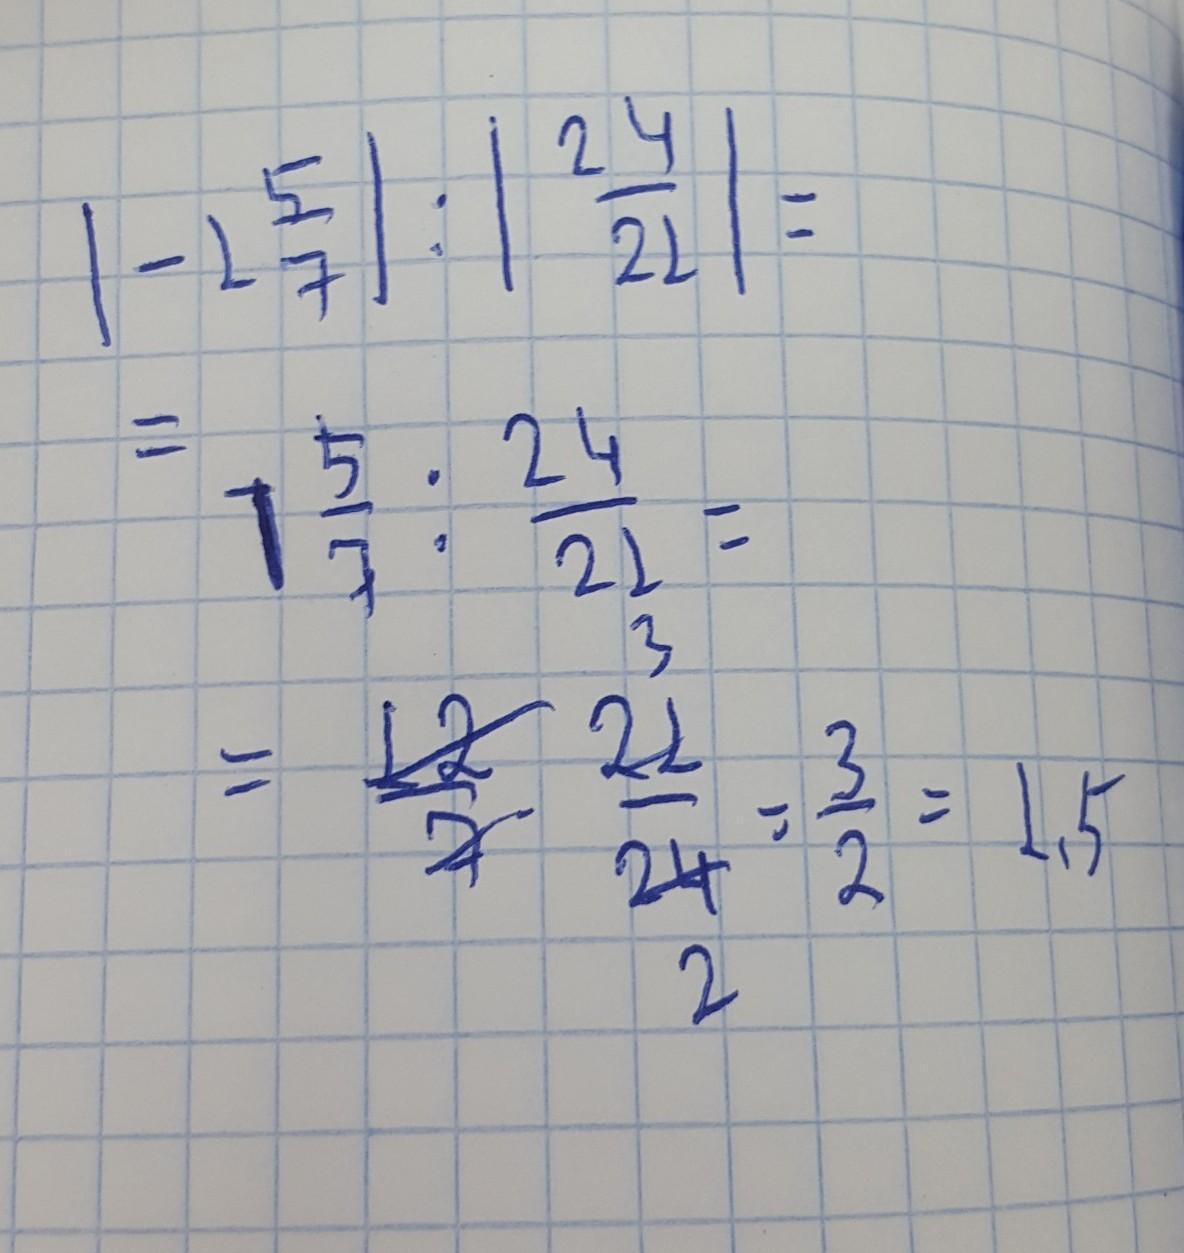 |-1 5/7| : |24/21| =
= 1 5/7 : 24/21 =
3
= 12/7 21/24 = 3/2 = 1,5
2